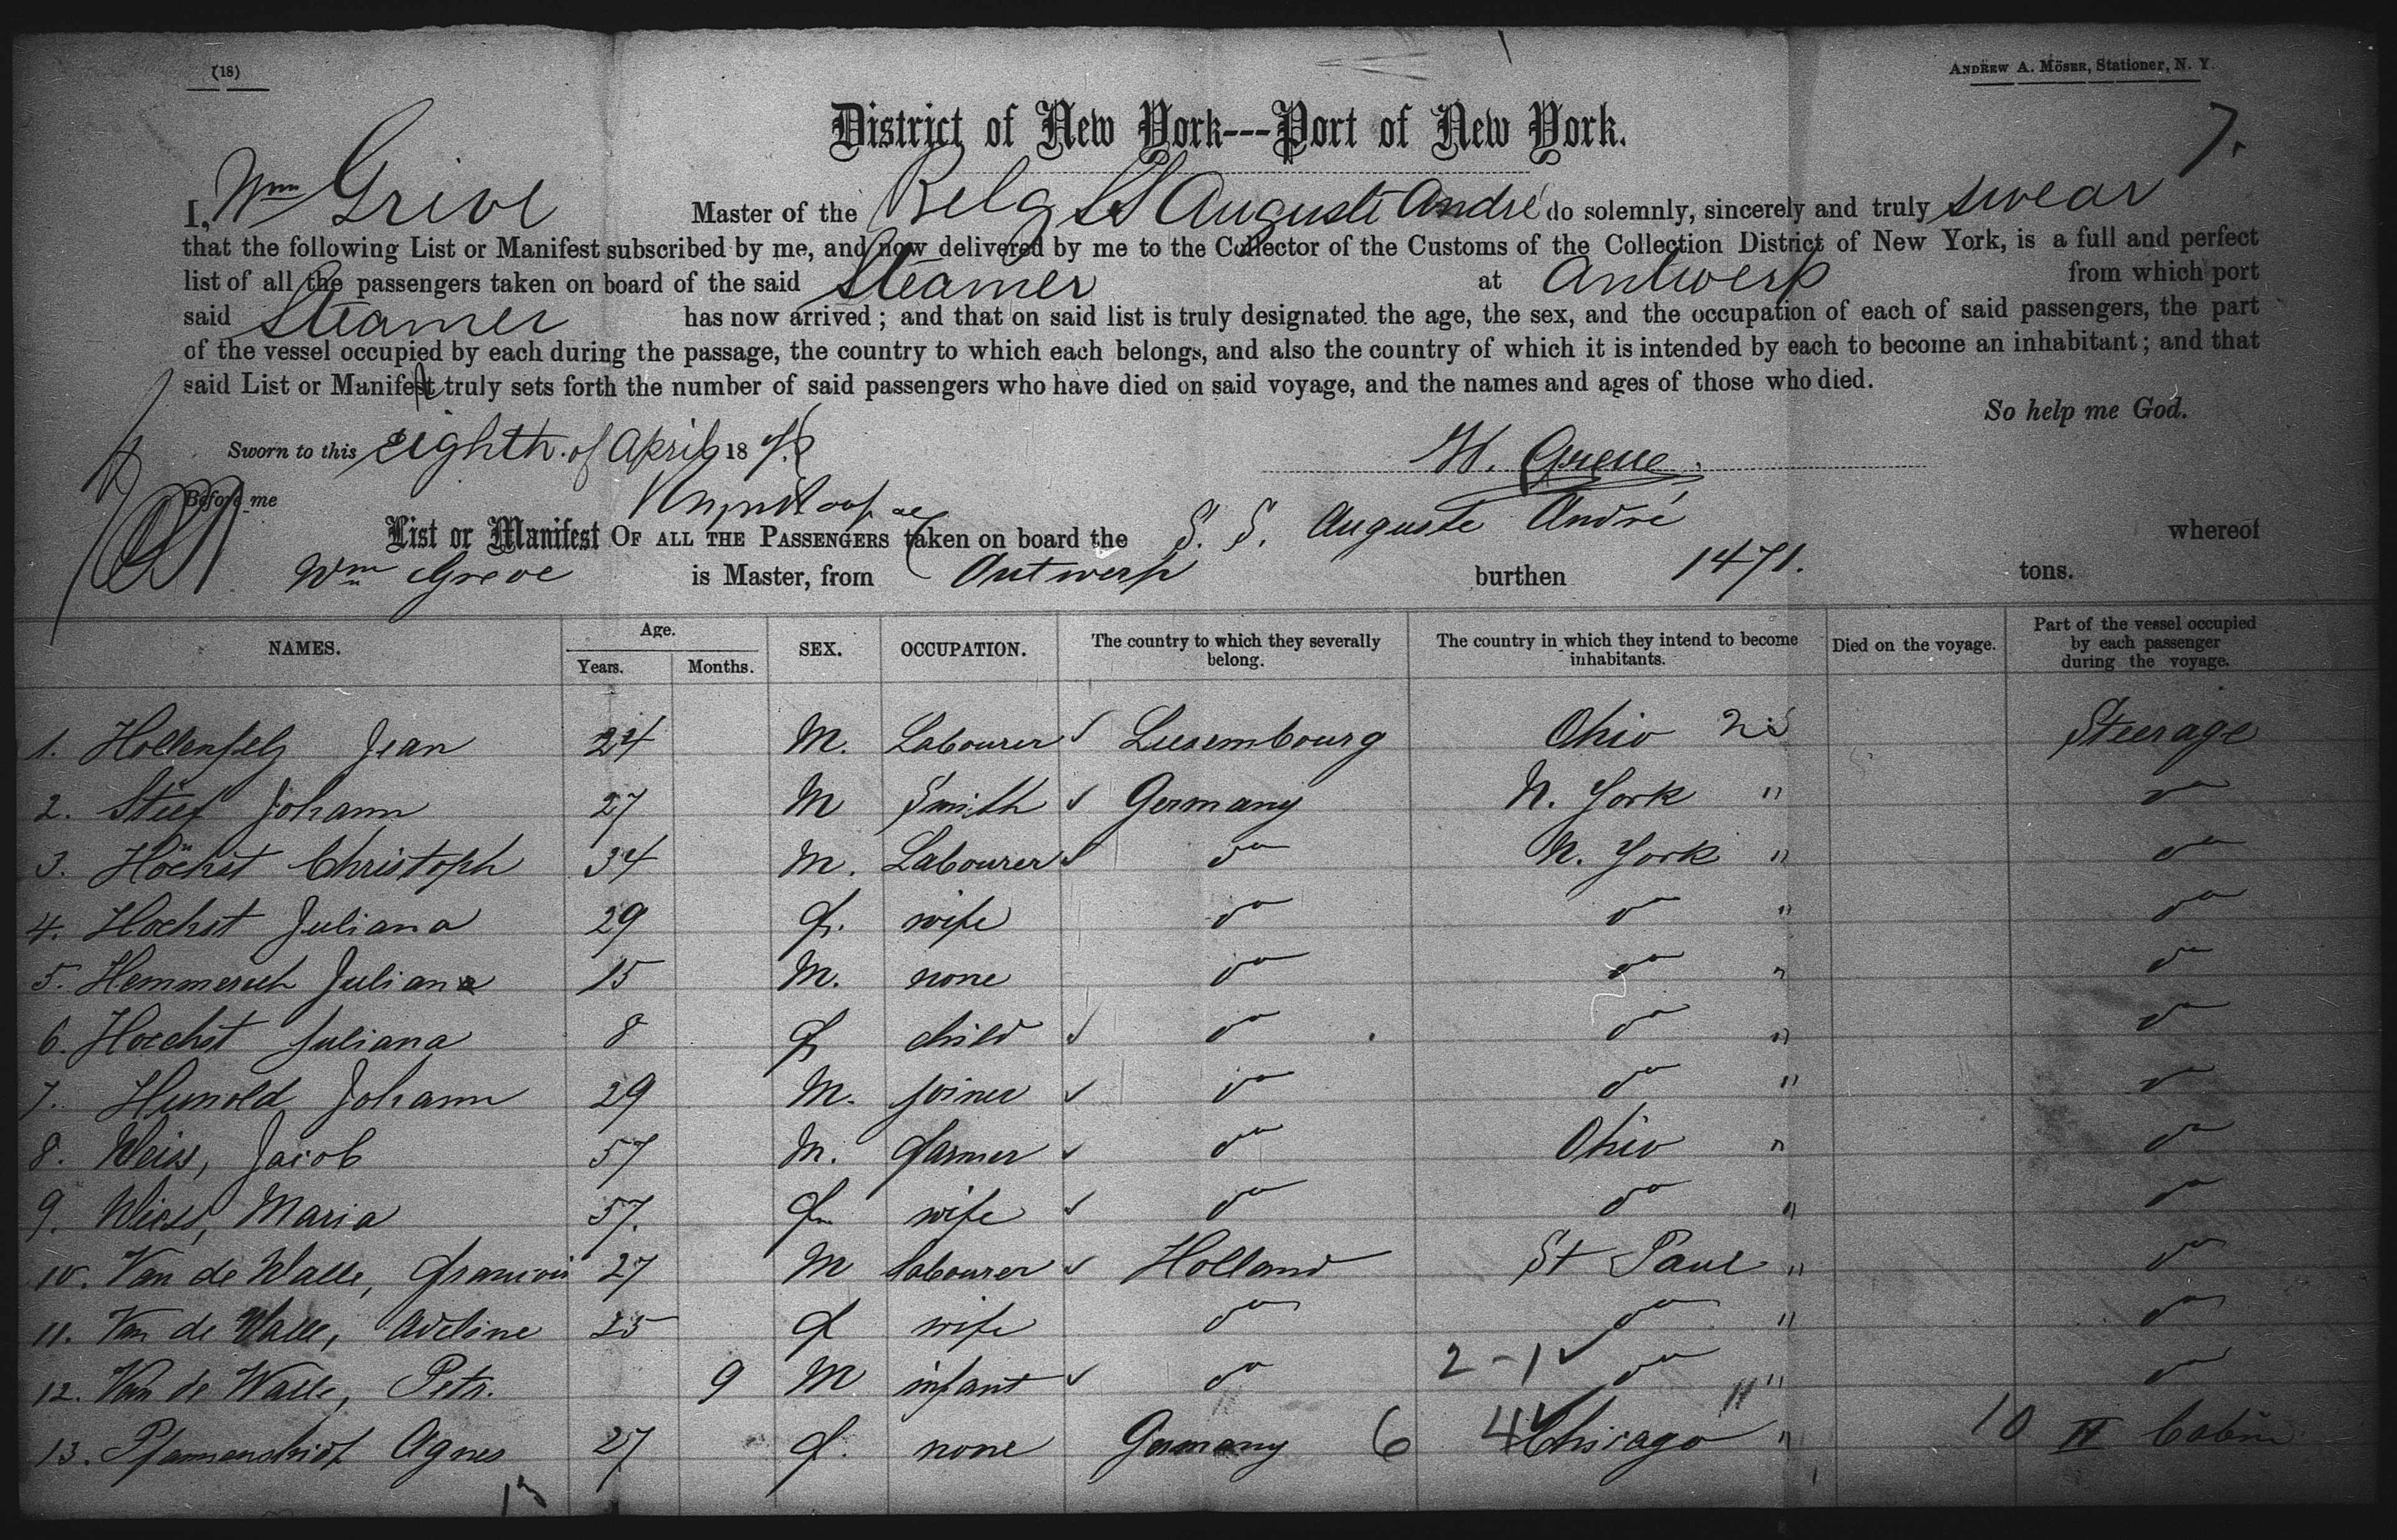 (18)
ANDREW A. MÖSER, Stationer, N. Y.
District of New York---Port of New York.
7.
I, Wm Grive Master of the Belg SS Auguste André do solemnly, sincerely and truly swear
that the following List or Manifest subscribed by me, and now delivered by me to the Collector of the Customs of the Collection District of New York, is a full and perfect
list of all the passengers taken on board of the said Steamer at Antwerp from which port
said Steamer has now arrived; and that on said list is truly designated the age, the sex, and the occupation of each of said passengers, the part
of the vessel occupied by each during the passage, the country to which each belongs, and also the country of which it is intended by each to become an inhabitant; and that
said List or Manifest truly sets forth the number of said passengers who have died on said voyage, and the names and ages of those who died.
So help me God.
Sworn to this eighth of April 18
W. Greve
Before me
List or Manifest OF ALL THE PASSENGERS taken on board the S. S. Auguste André whereof
Wm Greve is Master, from Antwerp burthen 1471. tons.
NAMES. Age. Years. Months. SEX. OCCUPATION. The country to which they severally belong. The country in which they intend to become inhabitants. Died on the voyage. Part of the vessel occupied by each passenger during the voyage.
1. Hollenfelz Jean 24 M. Labourer Luxembourg Ohio Steerage
2. Stief Johann 27 M Smith Germany N. York " do
3. Höchst Christoph 34 M. Labourer do N. York " do
4. Hochst Juliana 29 f. wife do do " do
5. Hemmerich Juliana 15 M. none do do " do
6. Hoechst Juliana 8 f child do do " do
7. Hunold Johann 29 M. joiner do do " do
8. Weiss, Jacob 57 M. farmer do Ohio " do
9. Weiss, Maria 57. f. wife do do " do
10. Van de Walle, Francois 27 M labourer Holland St Paul " do
11. Van de Walle, Adeline 25 f wife do do " do
12. Van de Walle, Petr. 9 M infant do 2-1 do " do
13. Pfannenschidt Agnes 27 f. none Germany 6 4 Chicago " 10 II Cabin
13